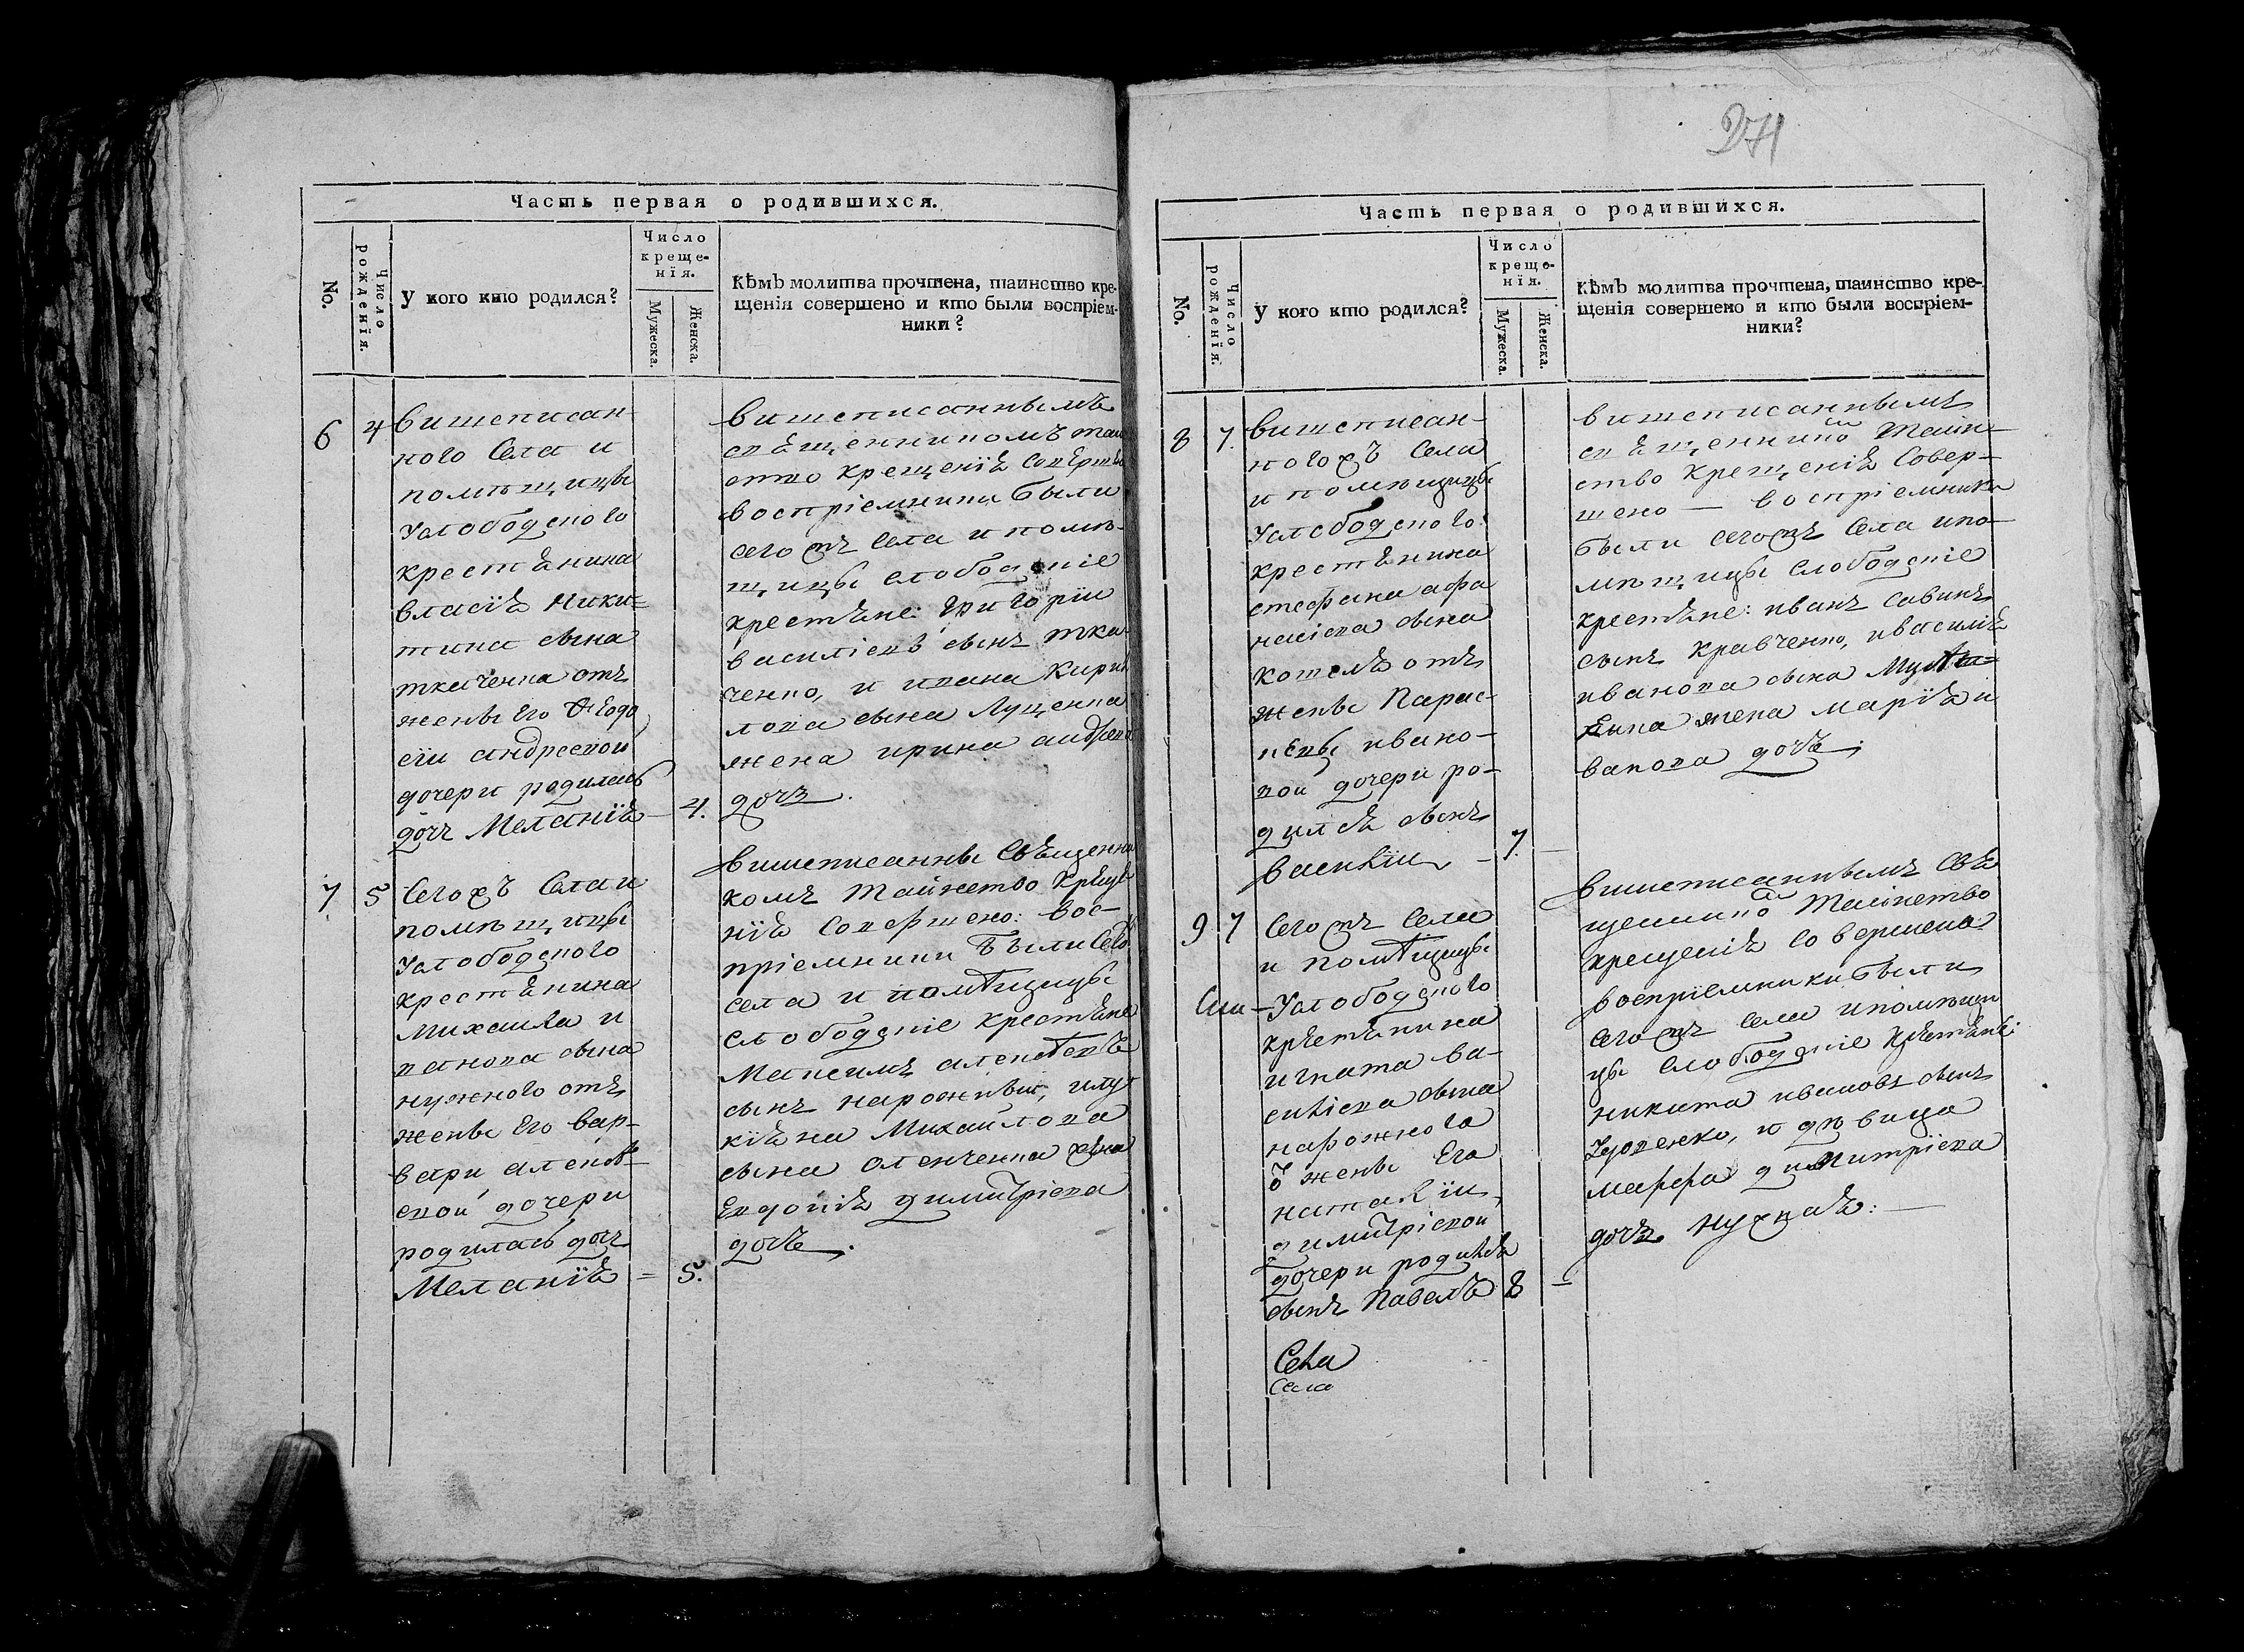 274
Часть первая о родившихся.
No.
Число рожденїя.
У кого кто родился?
Число
креще-
нїя.
Мужеска.
Женска.
Кѣмъ молитва прочтена, таинство кре-
щенія совершено и кто были воспріем-
ники?
6
4
вишеписан-
ного Села и
помѣщицы
крестѣнина
власіѣ Ники=
тина сына
ткаченка отъ
жены Его Ѳеодо
сіи андреевой
дочери родилась
дочъ Меланїѣ
4.
вишеписаннымъ
свѣщенникомъ таи
ство крещенїѣ совѣрше
воспріемники были
сегожъ села и помѣ-
щицы слободскіе
крестѣне: григоріи
василіевъ сынъ тка
ченко, и ивана Кирил
лова сына Луценка
жена ирина андреева
дочъ.
7
5
Сегожъ Села и
помѣщицы
крестѣнина
Михаила и
ванова сына
нужного отъ
жены Его вар-
вари алексѣ-
евой дочери
родилась дочъ
Меланїѣ =
5.
вишеписанны Свѣщенни
комъ Таинство Крѣще
нїѣ Совершено: вос-
пріемники Были Сего
села и помѣщицы
слободскіе крестѣне
Максимъ алексѣевъ
сынъ нарожный, илу
кіѣна Михаилова
сына оленченка жена
Евдокіѣ димитріева
дочъ.
Часть первая о родившихся.
No.
Число рожденїя.
У кого кто родился?
Число
креще-
нїя.
Мужеска.
Женска.
Кѣмъ молитва прочтена, таинство кре-
щенія совершено и кто были воспріем-
ники?
8
7.
вишеписан-
ногожъ Села
и помѣщицы
крестѣнина
стефана афа
насіева сына
котелѣ отъ
жены Парас-
кевы ивано-
вой дочери ро-
дилсѣ сынъ
василіи
7.
вишеписаннымъ
свѣщеннико Таин-
ство Крещеніѣ Совер-
шено — воспріемники
были сегожъ Села ипо-
мѣщицы слободскіе
крестѣне: иванъ савинъ
сынъ кравченко, ивасиліѣ
иванова сына
жена маріѣ и
ванова дочъ.
9
7
Сегожъ Села
и помѣщицы
крѣстѣнина
игната ва-
силіева сына
нарожного
ѿ жены Его
наталіи
димитріевои
дочери родилсѣ
сынъ Павелъ
8
вишеписаннымъ Свѣ
щеннико Таинство
крещеніѣ совершено
воспріемники были
сегожъ села ипомѣщи
цы слободскіе крѣстѣнѣ:
никита ивановъ сынъ
и дѣвица
марфа димитріева
дочъ
Села
Села